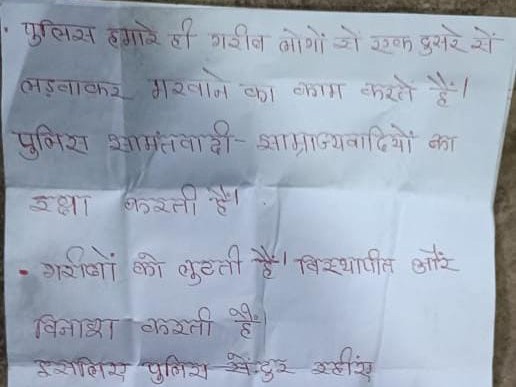 • पुलिस हमारे ही गरीब लोगों से एक दुसरे से
लड़वाकर मरवाने का काम करते हैं।
पुलिस सामंतवादी - साम्राज्यवादियों का
रक्षा करती है।
• गरीबों को लुटती है। विस्थापीत और
विनाश करती है।
इसलिए पुलिस से दुर रहीए